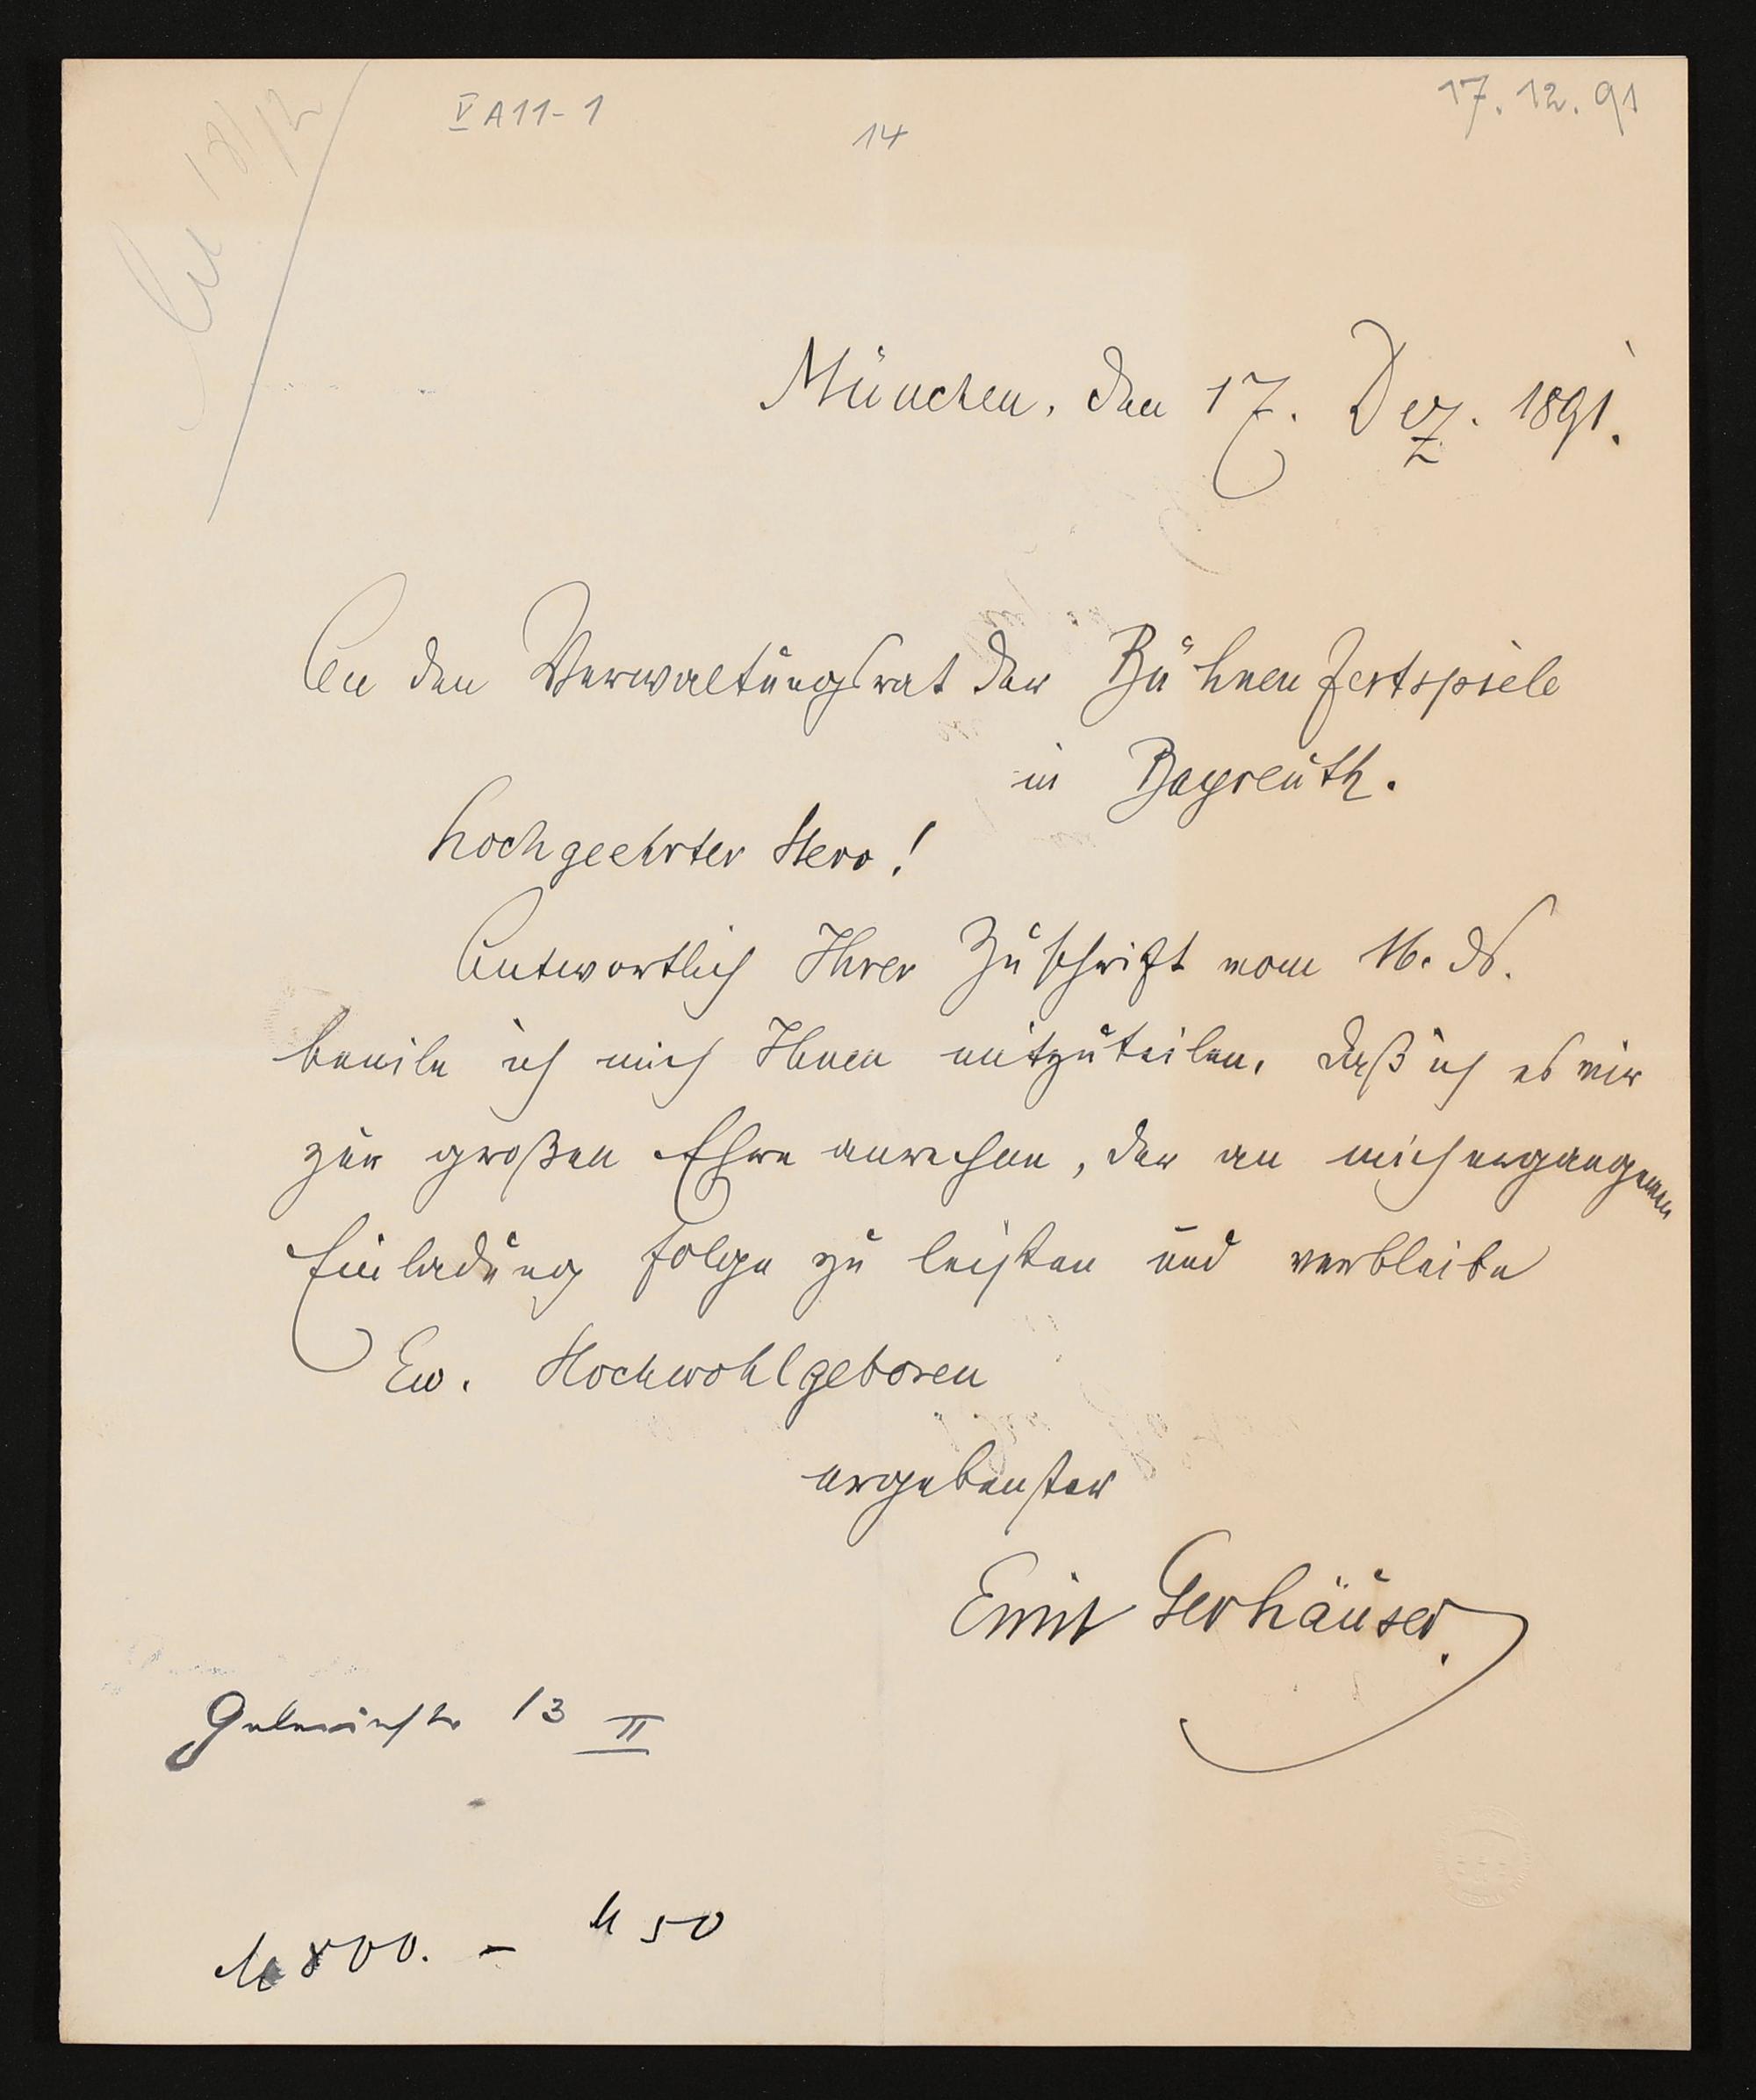 V A 11-1
14
17. 12. 91
18/12
München, den 17. Dez. 1891.
An den Verwaltungsrat der Bühnenfestspiele
in Bayreuth.
Hochgeehrter Herr!
Antwortlich Ihrer Zuschrift vom 16. ds.
beeile ich mich Ihnen mitzuteilen, daß ich es mir
zur großen Ehre anrechne, der an mich ergangenen
Einladung folge zu leisten und verbleibe
Ew. Hochwohlgeboren
ergebenster
Emil Gerhäuser.
13 II
M 800. – M 50